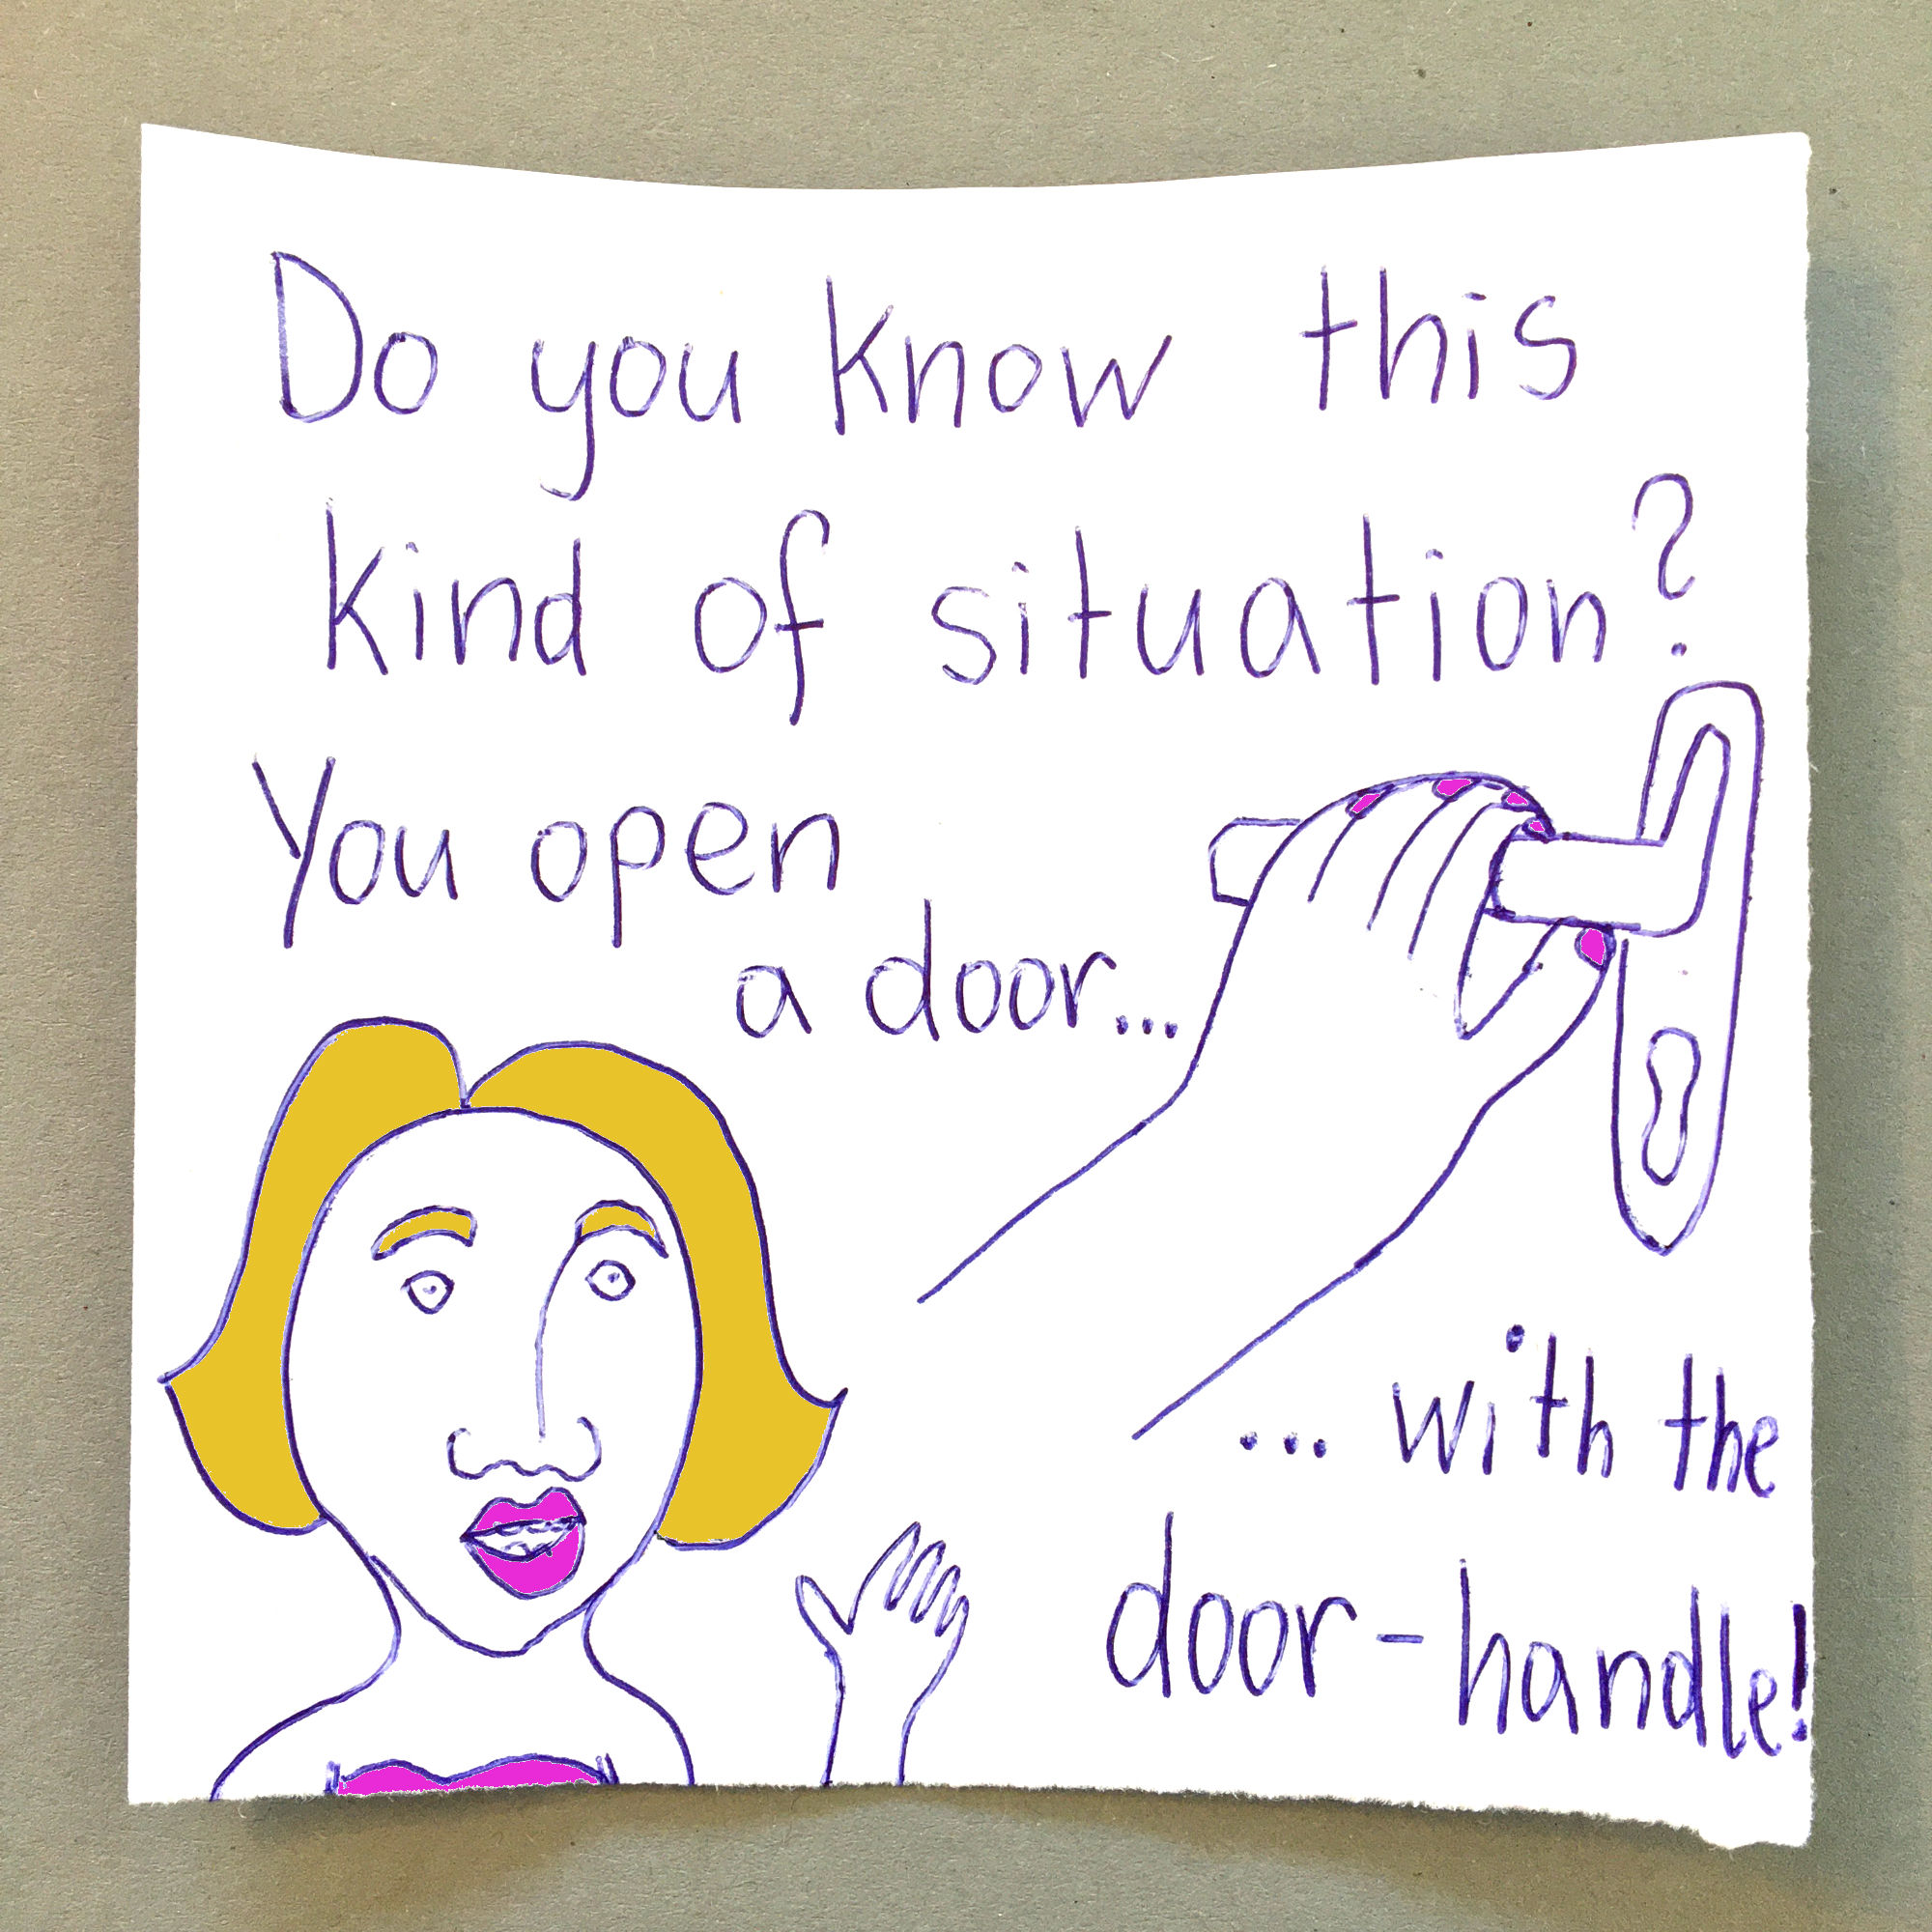 Do you know this
kind of situation?
You open
a door...
... with the
door-handle!